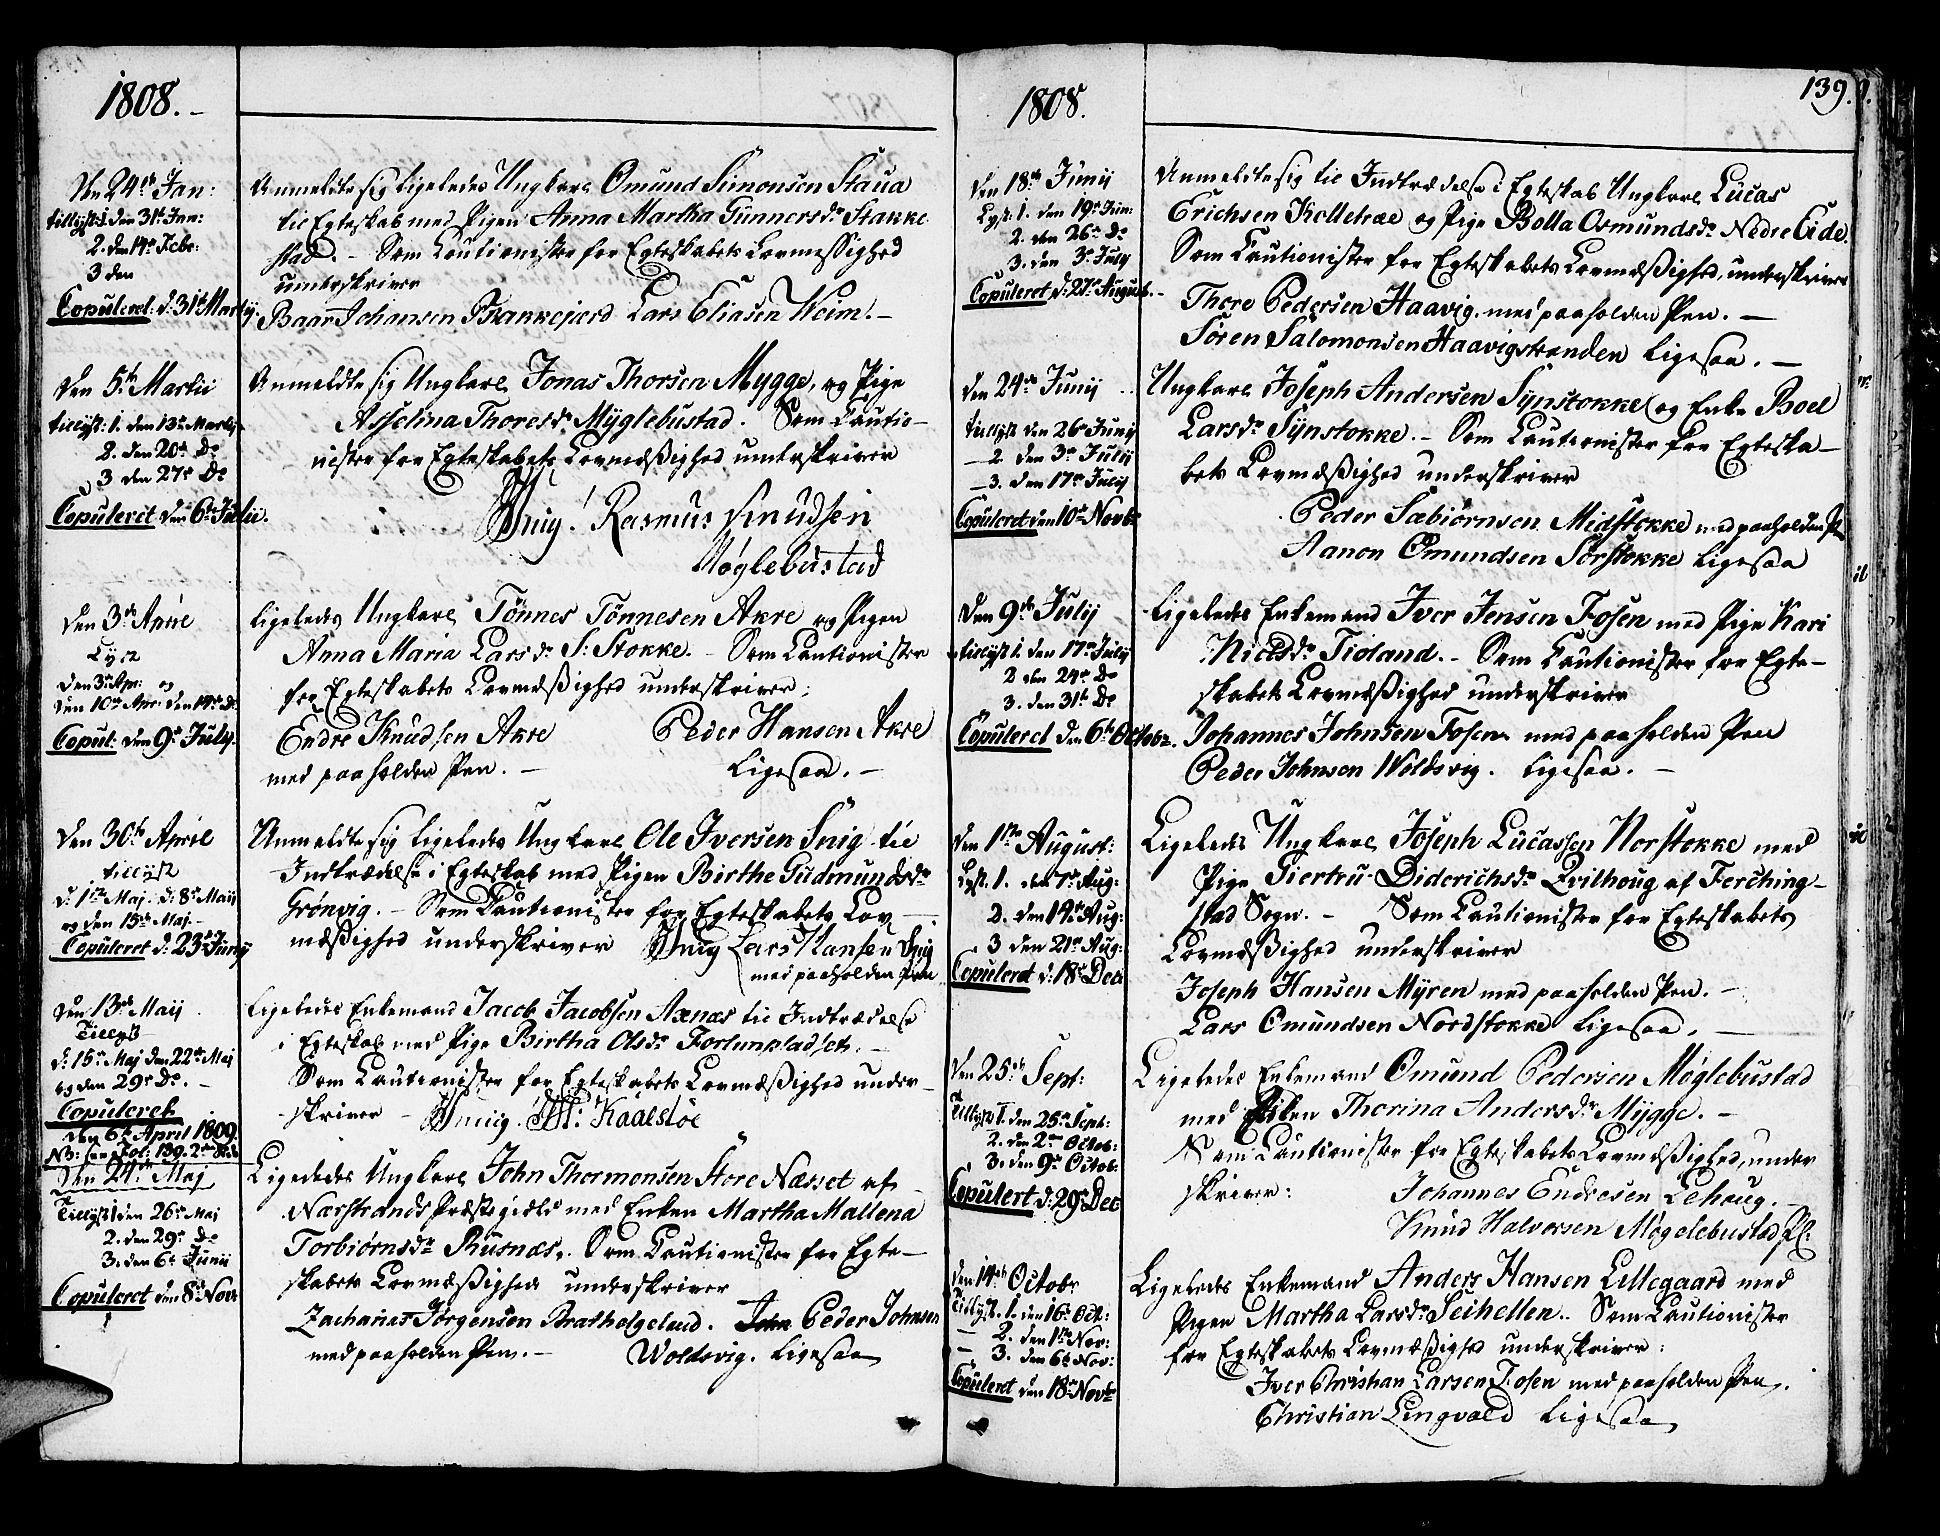 1808.
Den 24de Jan:
tillyst: 1. den 31te Jan:
2. den 14de Febr:
3 den
Copuleret: d: 31te Martij.
Anmeldte sig ligeledes Ungkarl Omund Simonsen Staua
til Egteskab med Pigen Anna Martha Gunnersdr Stakke
stad. – Som Cautionister for Egteskabets Lovmessighed
underskriver
Baar Johansen Bakkejord Lars Eliasen Weim. –
Den 5te Martii
tillyst: 1. den 13de Martij
2. den 20de Do
3 den 27de Do
Copuleret den 6te Julii.
Anmeldte sig Ungkarl Jonas Thorsen Mygge, og Pige
Asselina Thoresdr Myglebustad. Som Cautio–
nister for Egteskabets Lovmæßighed underskriver
Snig! Rasmus Knudsen
Møglebustad
Den 3de Aprie
Lyst
den 3de Apr: og
den 10de Apr: den 14de do
Copul: den 9de July.
ligeledes Ungkarl Tönnes Tönnesen Akre og Pigen
Anna Maria Larsdr S: Stokke. – Som Cautionister
for Egteskabets Lovmæßighed underskriver:
Endre Knudsen Akre Peder Hansen Akre
med paaholden Pen. – Ligesaa. –
Den 30te Aprill
tillyst
d: 1ste Maj. d: 8de Maij
og den 15de Maj. –
Copuleret d: 23de Junij
Anmeldte sig ligeledes Ungkarl Ole Iversen Snig til
Indtrædelse i Egteskab med Pigen Birthe Gudmundsdr
Grönvig. – Som Cautionister for Egteskabets Lov–
mæßighed underskriver Snig Lars Hansen Snig
med paaholden Pen
Den 13de Maij
Tillyst
d: 15de Maj den 22de Maj
og den 29de Do. –
Copuleret
den 6te April 1809.
NB: see Fol: 139. 2den Side
Ligeledes Enkemand Jacob Jacobsen Axnæs til Indtrædelse
i Egteskab med Pige Birtha Olsdr Fortunpladset. –
Som Cautionister for Egteskabets Lovmæßighed under–
skriver – Snig. Kaalstöe
Den 24de Maj
Tillyst 1 den 26de Maj
2. den 29de Do
3. den 6te Junii
Copuleret den 8de Novr
Ligeledes Ungkarl John Thormonsen Store Næsset af
Narstrands Præstegield med Enken Martha Mallena
Torbiörnsdr Rusnæs. Som Cautionister for Egte–
skabets Lovmæßighed underskriver
Zacharias Jörgensen Bratholgeland. Peder Johnsen
med paaholden Pen. – Woldsvig. Ligesaa
1808.
139.
Den 18de Junij
Lyst. 1. den 19de Jun:
2. den 26de Do
3. den 3de July
Copuleret d: 27de August. –
Anmeldte sig til Indtrædelse i Egteskab Ungkarl Lucas
Erichsen Kolletræe og Pige Bolla Osmundsdr Nedre Eide.
Som Cautionister for Egteskabets Lovmæßighed, underskriver
Thore Pedersen Haavig. med paaholden Pen. –
Sören Salomonsen Haavigstranden Ligesaa. –
Den 24de Junij
tillyst den 26de Junij
– 2 den 3de Julij
– 3. den 17de Julij
Copuleret den 10de Novbr
Ungkarl Joseph Andersen Synstokke og Enke Boel
Larsdr Synstokke. – Som Cautionister for Egteska–
bets Lovmæßighed underskriver
Peder Sæbiörnsen Midstokke med paaholden P
Aanon Omundsen Sörstokke Ligesaa
Den 9de Julij
tillyst 1. den 17de Julij
2 den 24de Do
3. den 31te Do
Copuleret den 6te Octobr.
Ligeledes Enkemand Iver Jensen Fosen med Pige Kari
Nielsdr Tioland. – Som Cautionister for Egte–
skabets Lovmæßighed underskriver
Johannes Johnsen Fosen med paaholden Pen
Peder Johnsen Woldsvig. Ligesaa. –
Den 1ste August:
Lyst. 1. den 7de Aug:
2. den 14de Aug:
3 den 21de Aug:
Copuleret d: 18de Dec
Ligeledes Ungkarl Joseph Lucassen Norstokke med
Pige Giertru Diderichsdr Qvilhoug af Ferching–
stad Sogn. – Som Cautionister for Egteskabets
Lovmæßighed underskriver
Joseph Hansen Myren med paaholden Pen. –
Lars Omundsen Nordstokke Ligesaa. –
Den 25de Sept:
Tillyst 1. den 25de Sept:
2. den 2den Octob:
3. den 9de Octob:
Copulert d: 29de Dec
Ligeledes Enkemand Omund Pedersen Møglebustad
med Piken Thorina Andersdr Mygge. –
Som Cautionister for Egteskabets Lovmæßighed, under
skriver: Johannes Endresen Lehoug
Knud Halvorsen Møgelebustad
Den 14de Octobr
Tillyst. 1. den 16de Oct:
– 2. den 1ste Nov:
– 3. den 6te Nov:
Copuleret den 18de Novbr
Ligeledes Enkemand Anders Hansen Lillegaard med
Pigen Martha Larsdr Seihellen. Som Cautionister
for Egteskabets Lovmæßighed underskriver:
Iver Christian Larsen Fosen med paaholden Pen.
Christian Lingvald Ligesaa